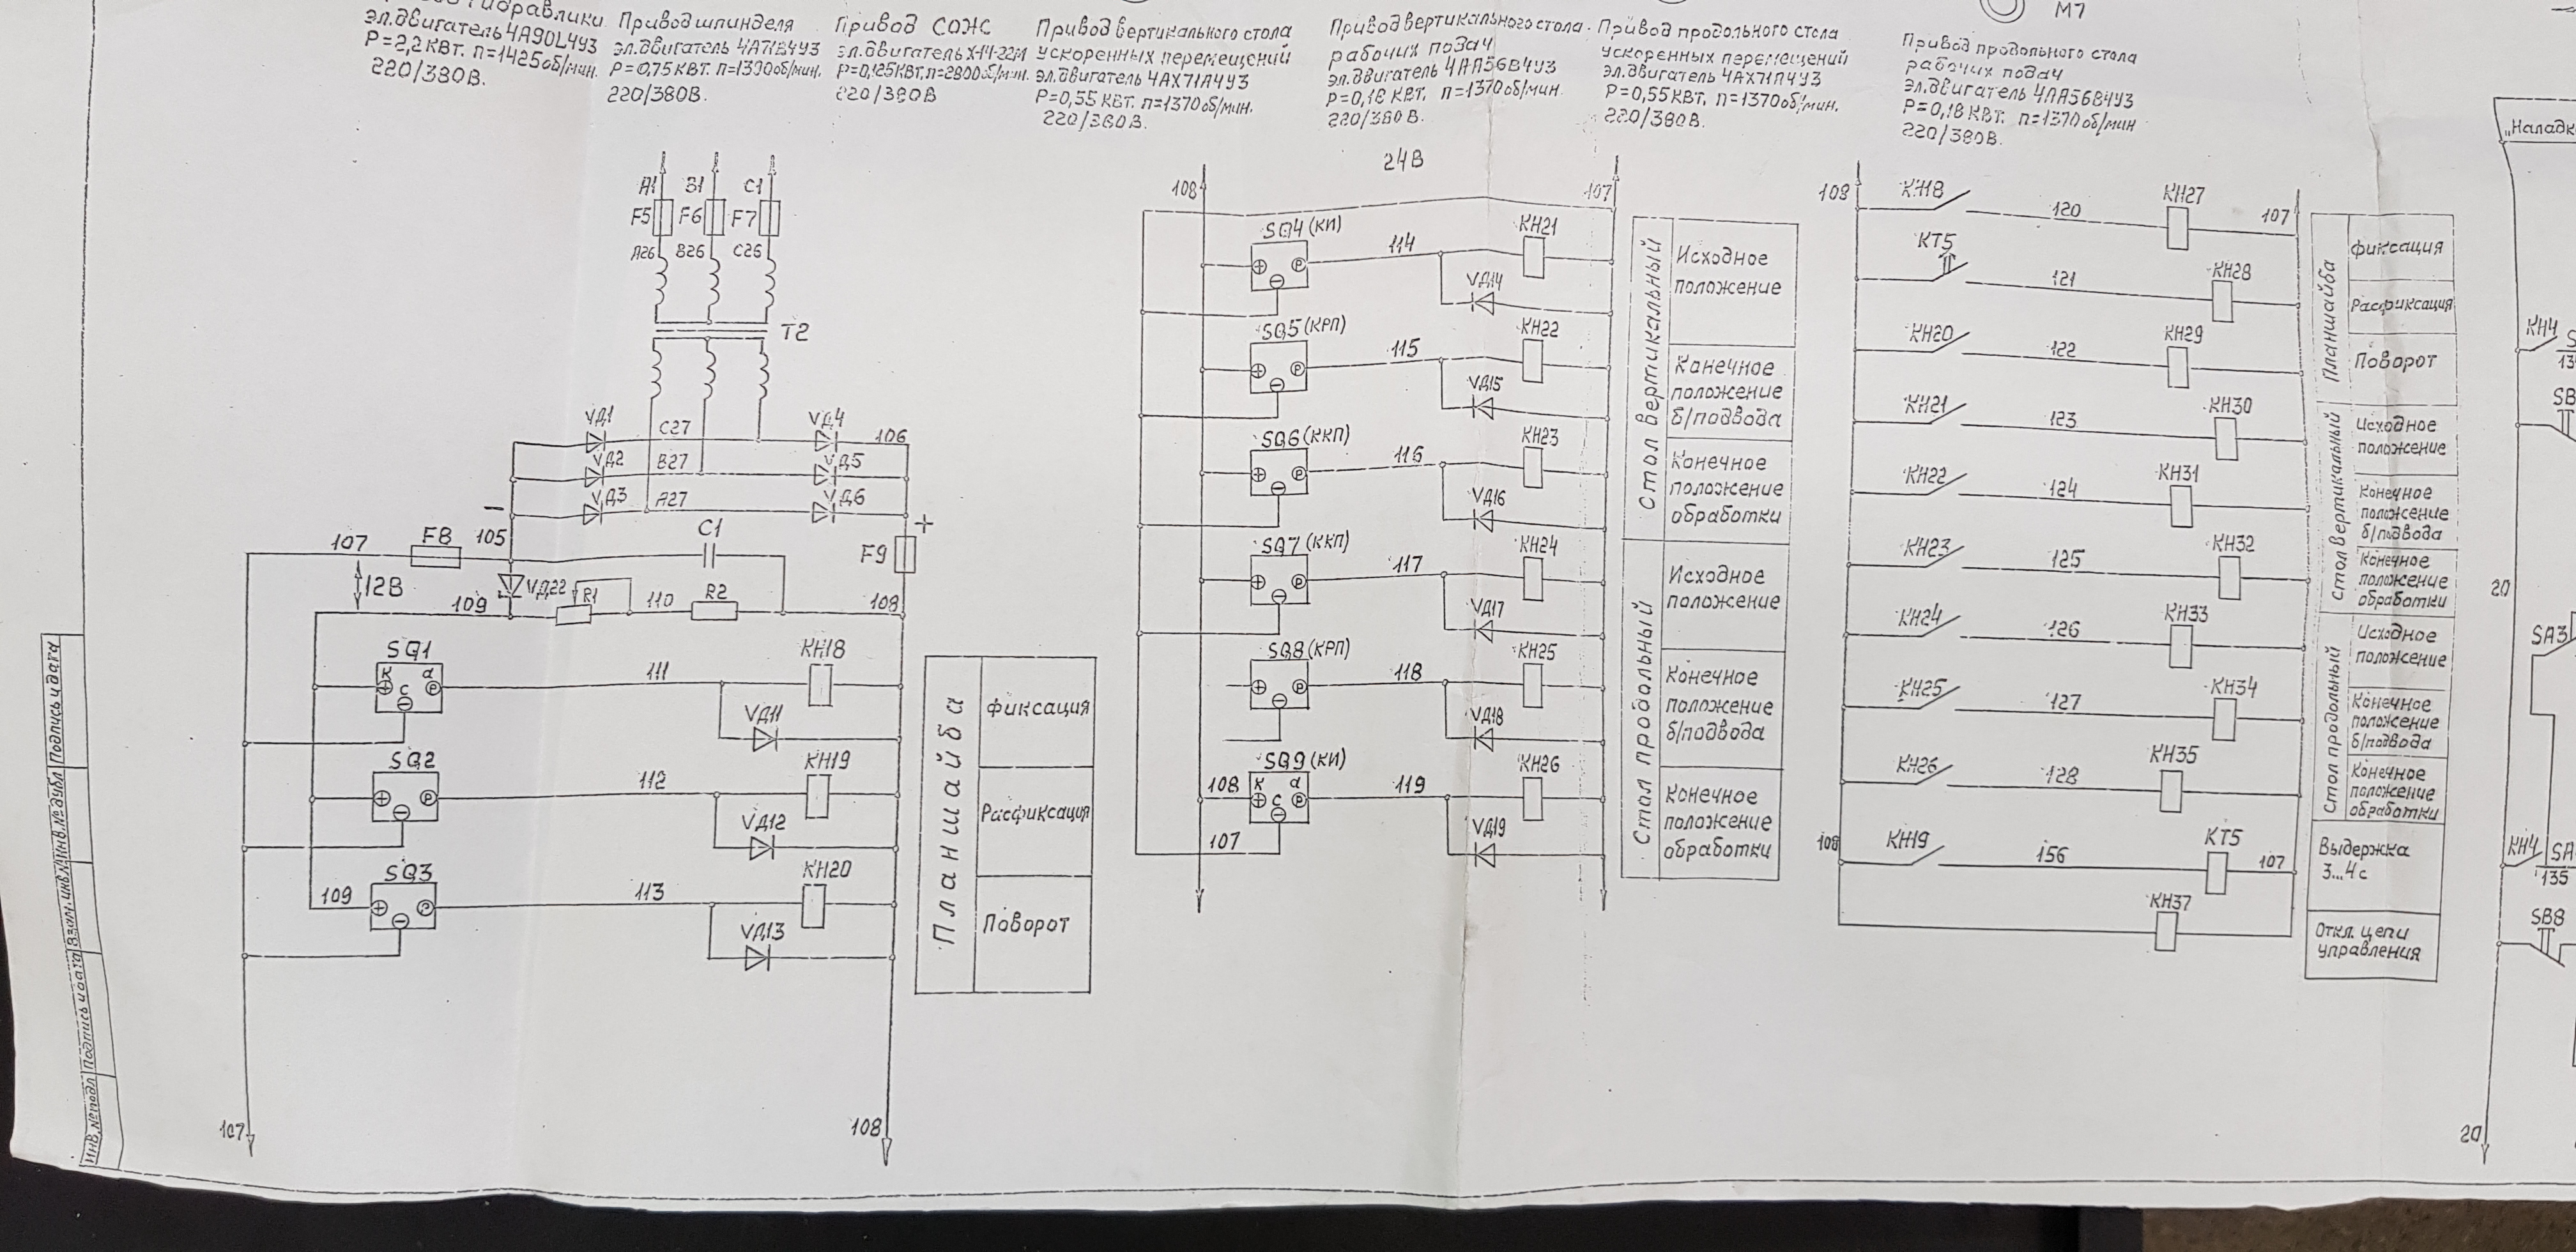 эл.двигатель 4А90L4У3
Р=2,2 кВт. n=1425об/мин.
220/380В.
Привод шпинделя
эл.двигатель 4А71В4У3
Р=0,75 кВт. n=1390об/мин.
220/380В.
Привод СОЖ
эл.двигатель Х-14-22М
Р=0,125кВт, n=2800об/мин.
220/380В
Привод вертикального стола
ускоренных перемещений
эл.двигатель 4АХ71А4У3
Р=0,55 кВт. n=1370об/мин.
220/380В.
Привод вертикального стола.
рабочих подач
эл.двигатель 4АА56В4У3
Р=0,18 кВт. n=1370об/мин.
220/380В.
Привод продольного стола
ускоренных перемещений
эл.двигатель 4АХ71А4У3
Р=0,55кВт. n=1370об/мин.
220/380В.
М7
Привод продольного стола
рабочих подач
эл.двигатель 4АА56В4У3
Р=0,18 кВт. n=1370об/мин
220/380В.
А1 В1 С1
F5 F6 F7
А26 В26 С26
Т2
VД1 С27 VД4 106
VД2 В27 VД5
VД3 А27 VД6
− +
107 F8 105 С1 F9
12В VД22 R1
109 110 R2 108
SQ1 К d С Р 111 КН18
VД11
SQ2 Р 112 КН19
VД12
109 SQ3 Р 113 КН20
VД13
107 108
Планшайба
фиксация
Расфиксация
Поворот
24В
108 107
SQ4(КИ) Р 114 КН21
VД14
SQ5(КРП) Р 115 КН22
VД15
SQ6(ККП) Р 116 КН23
VД16
SQ7(ККП) Р 117 КН24
VД17
SQ8(КРП) Р 118 КН25
VД18
SQ9(КИ)
108 К d С Р 119 КН26
107 VД19
Стол вертикальный
Исходное
положение
Конечное
положение
б/подвода
Конечное
положение
обработки
Стол продольный
Исходное
положение
Конечное
положение
б/подвода
Конечное
положение
обработки
108 КН18 120 КН27 107
КТ5 121 КН28
КН20 122 КН29
КН21 123 КН30
КН22 124 КН31
КН23 125 КН32
КН24 126 КН33
КН25 127 КН34
КН26 128 КН35
108 КН19 156 КТ5 107
КН37
Планшайба
фиксация
Расфиксация
Поворот
Стол вертикальный
Исходное
положение
Конечное
положение
б/подвода
Конечное
положение
обработки
Стол продольный
Исходное
положение
Конечное
положение
б/подвода
Конечное
положение
обработки
Выдержка
3...4с
Откл. цепи
управления
КН4
20
SA3
КН4 SA
135
SB8
20
Инв.№подл Подпись и дата Взам.инв.№ Инв.№дубл Подпись и дата